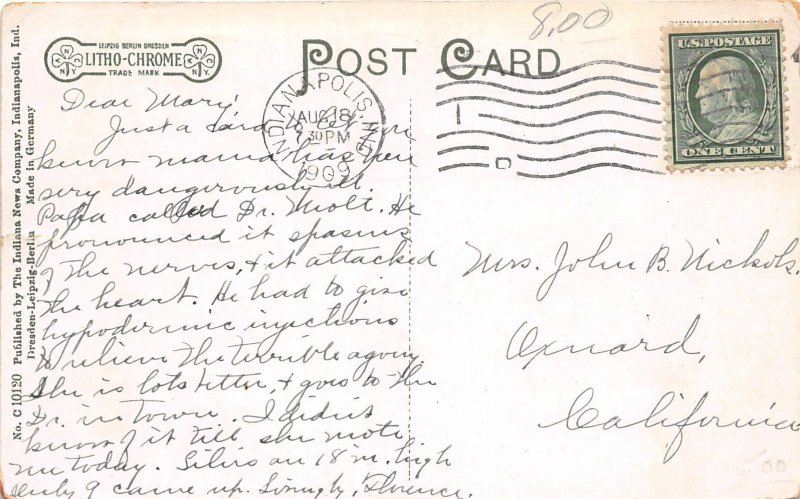 8.00
LEIPZIG BERLIN DRESDEN
LITHO-CHROME
TRADE MARK
POST CARD
U.S. POSTAGE
ONE CENT
INDIANAPOLIS, IND.
AUG 18
30 PM
1909
Dear Mary;
Just a card to let you
know mama has been
very dangerously ill.
Papa called Dr. Molt. He
pronounced it spasms
of the nerves, & it attacked
the heart. He had to give
hypodermic injections
to relieve the terrible agony.
She is lots better, & goes to the
Dr. in town. I didn't
know of it till she wrote
me today. 18 in. high
only 9 came up. Lovingly, Florence.
Mrs. John B. Nichols.
Oxnard,
California
No. C 10120 Published by The Indiana News Company, Indianapolis, Ind.
Dresden-Leipzig-Berlin Made in Germany